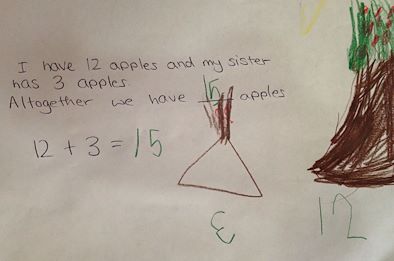 I have 12 apples and my sister
has 3 apples.
Altogether we have 15 apples
12 + 3 = 15
3 12